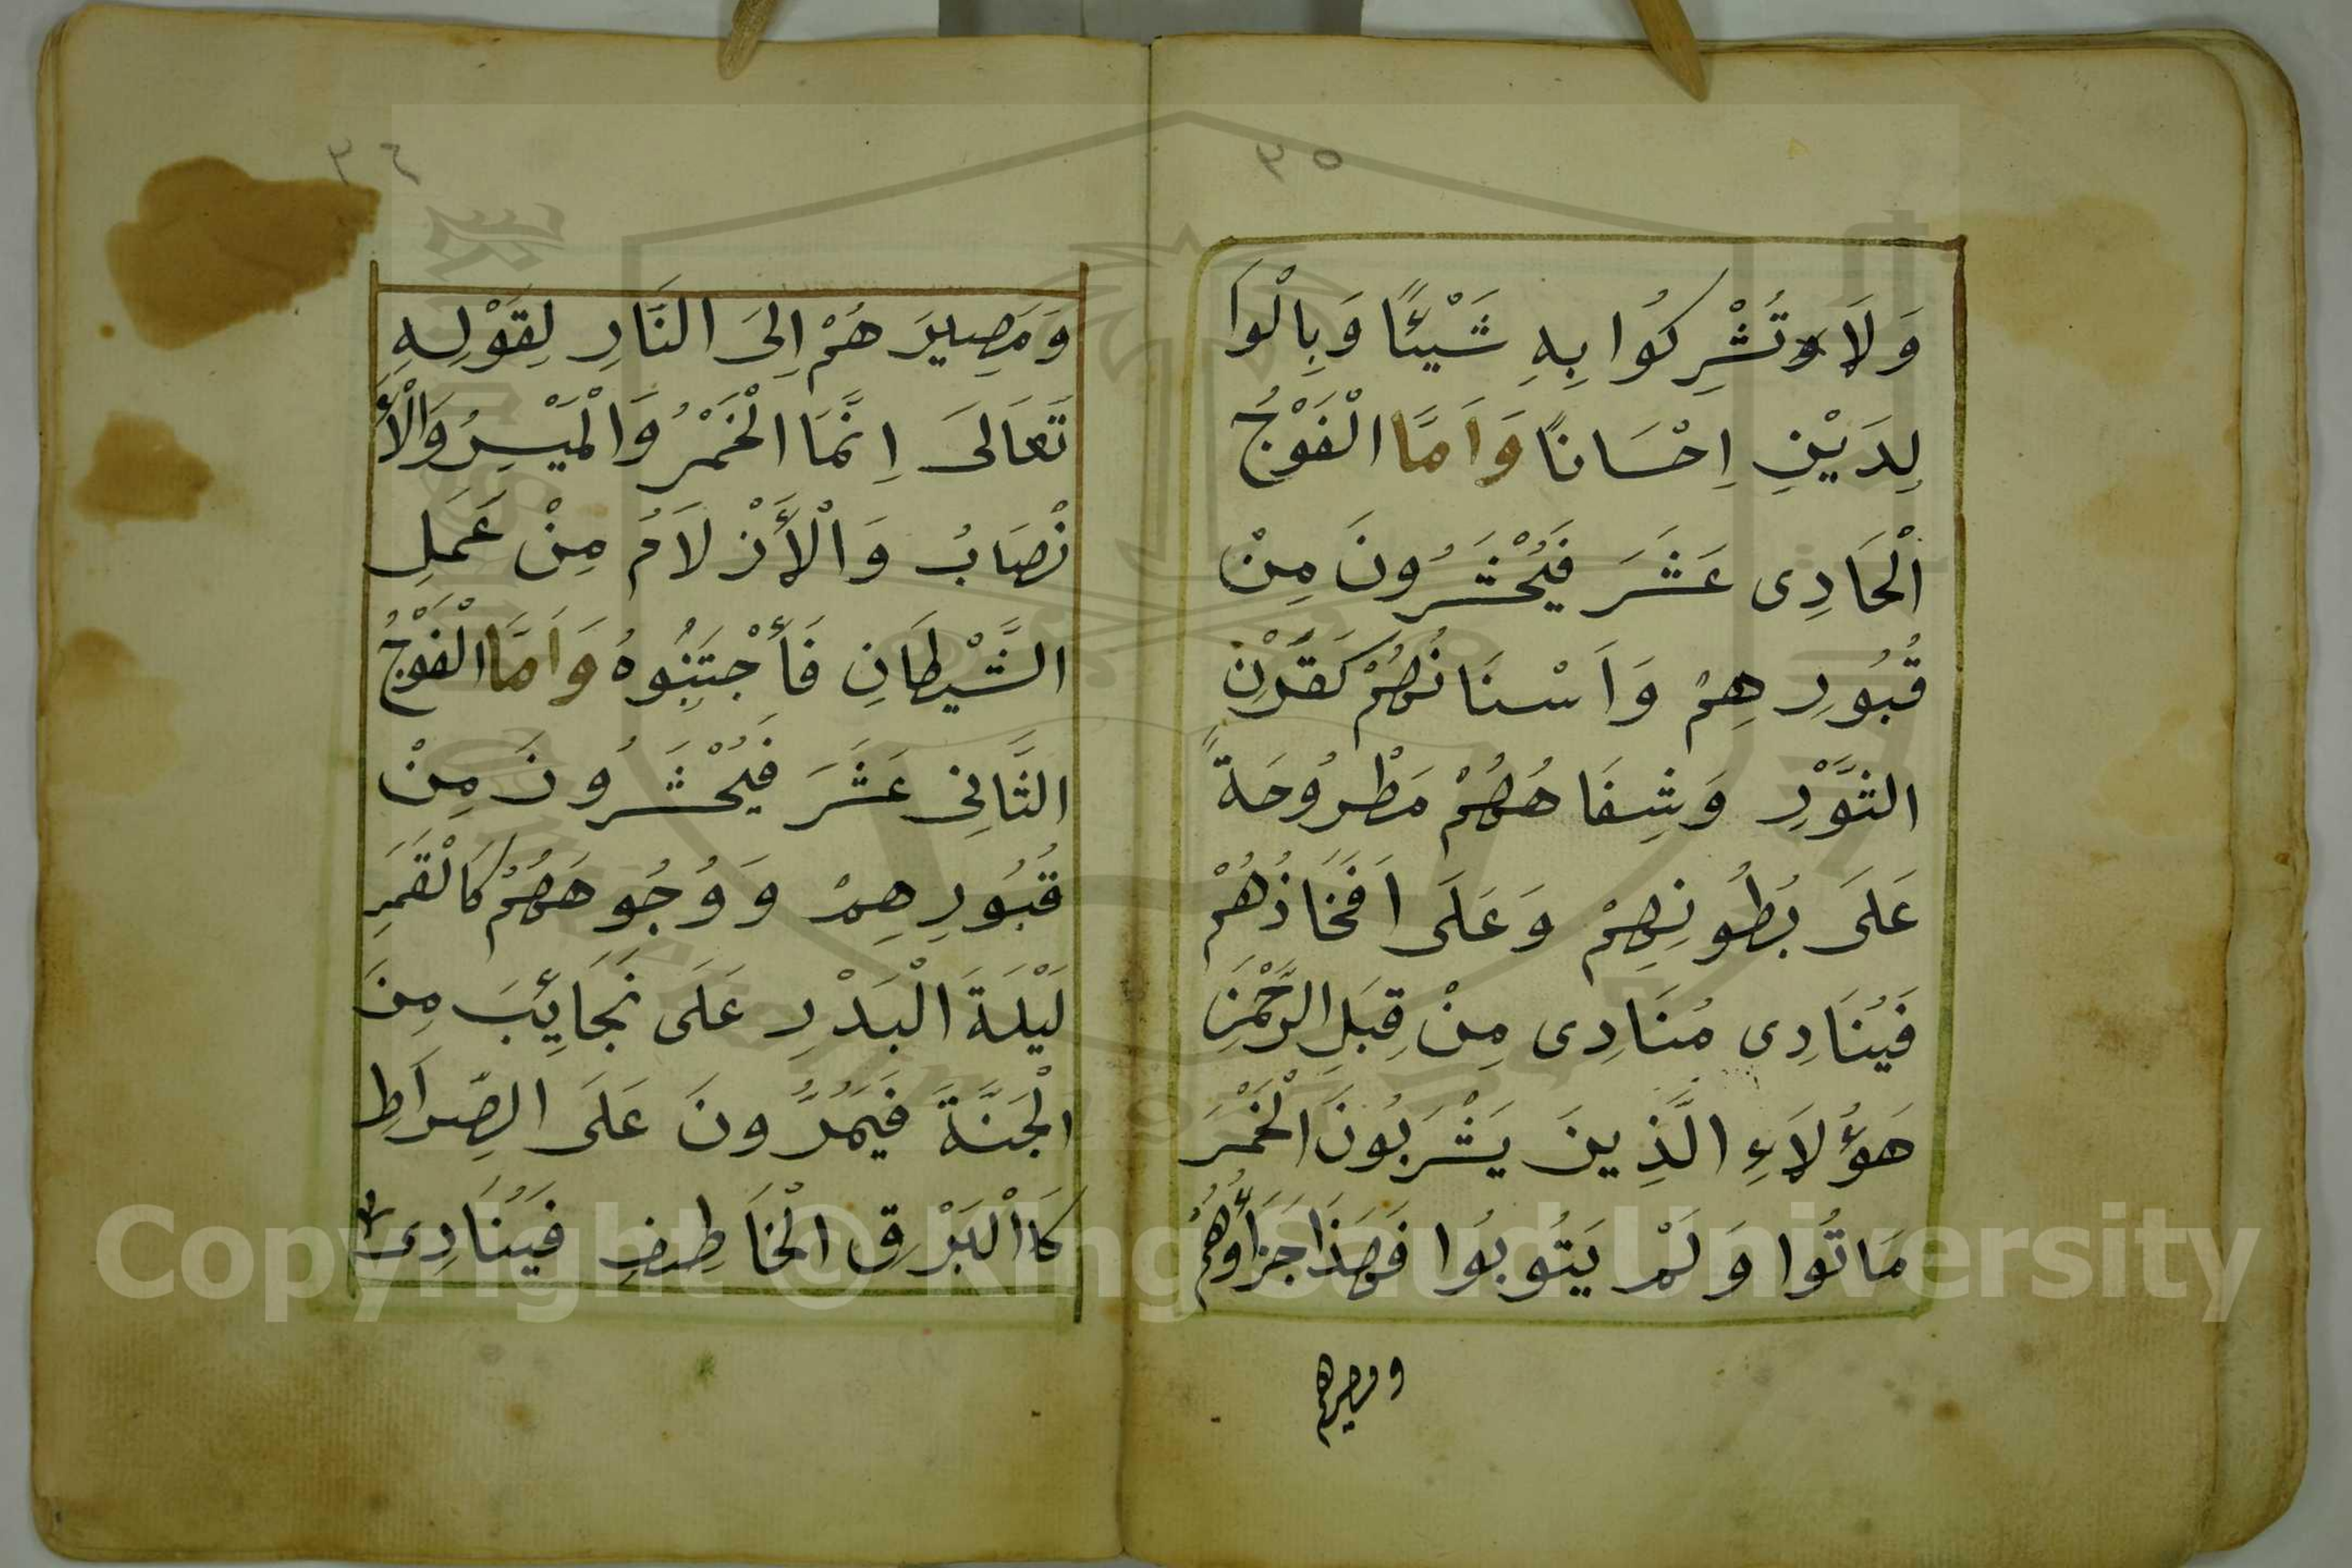 ٣٥
وَلَا تُشْرِكُوا بِهِ شَيْئًا وَبِالْوَا
لِدَيْنِ اِحْسَانًا وَاَمَّا الْفَوْجُ
الْحَادِى عَشَرَ فَيُحْشَرُونَ مِنْ
قُبُورِهِمْ وَاَسْنَانُهُمْ كَقَرْنِ
الثَّوْرِ وَشِفَاهُهُمْ مَطْرُوحَةً
عَلَى بُطُونِهِمْ وَعَلَى اَفَخَاذُهُمْ
فَيُنَادِى مُنَادِى مِنْ قِبَلِ الرَّحْمٰنِ
هَؤُلَاءِ الَّذِينَ يَشْرَبُونَ الْخَمْرَ
مَاتُوا وَلَمْ يَتُوبُوا فَهَذَا جَزَاؤُهُمْ
ومصيرهم
٣٦
وَمَصِيرَهُمْ اِلَى النَّارِ لِقَوْلِهِ
تَعَالَى اِنَّمَا الْخَمْرُ وَالْمَيْسِرُ وَالْأَ
نْصَابُ وَالْأَزْلَامُ مِنْ عَمَلِ
الشَّيْطَانِ فَأجْتَنِبُوهُ وَاَمَّا الْفَوْجُ
الثَّانِى عَشَرَ فَيُحْشَرُونَ مِنْ
قُبُورِهِمْ وَوُجُوهَهُمْ كَالْقَمَرِ
لَيْلَةَ الْبَدْرِ عَلَى نَجَائِبَ مِنَ
الْجَنَّةَ فَيَمُرُّونَ عَلَى الصِّرَاطِ
كَاالْبَرْقِ الْخَاطِفِ فَيُنَادِى
Copyright © King Saud University